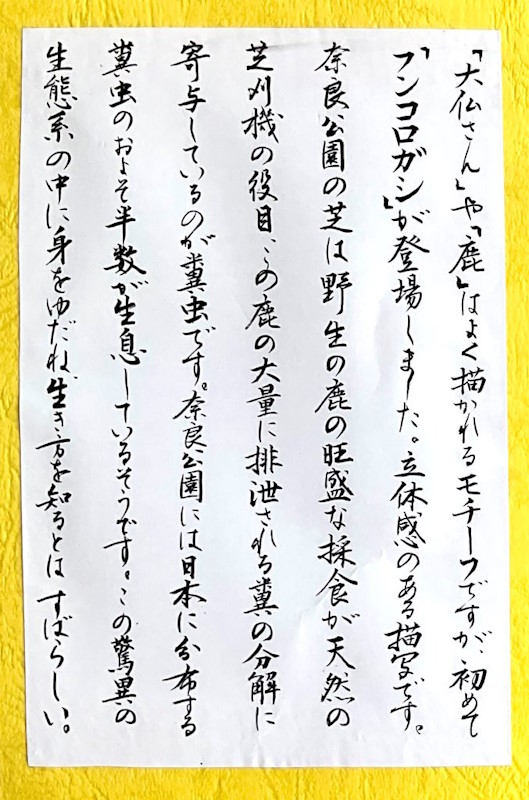 「大仏さん」や「鹿」はよく描かれるモチーフですが、初めて
「フンコロガシ」が登場しました。立体感のある描写です。
奈良公園の芝は野生の鹿の旺盛な採食が天然の
芝刈機の役目、この鹿の大量に排泄される糞の分解に
寄与しているのが糞虫です。奈良公園には日本に分布する
糞虫のおよそ半数が生息しているそうです。この驚異の
生態系の中に身をゆだね、生き方を知るとは すばらしい。